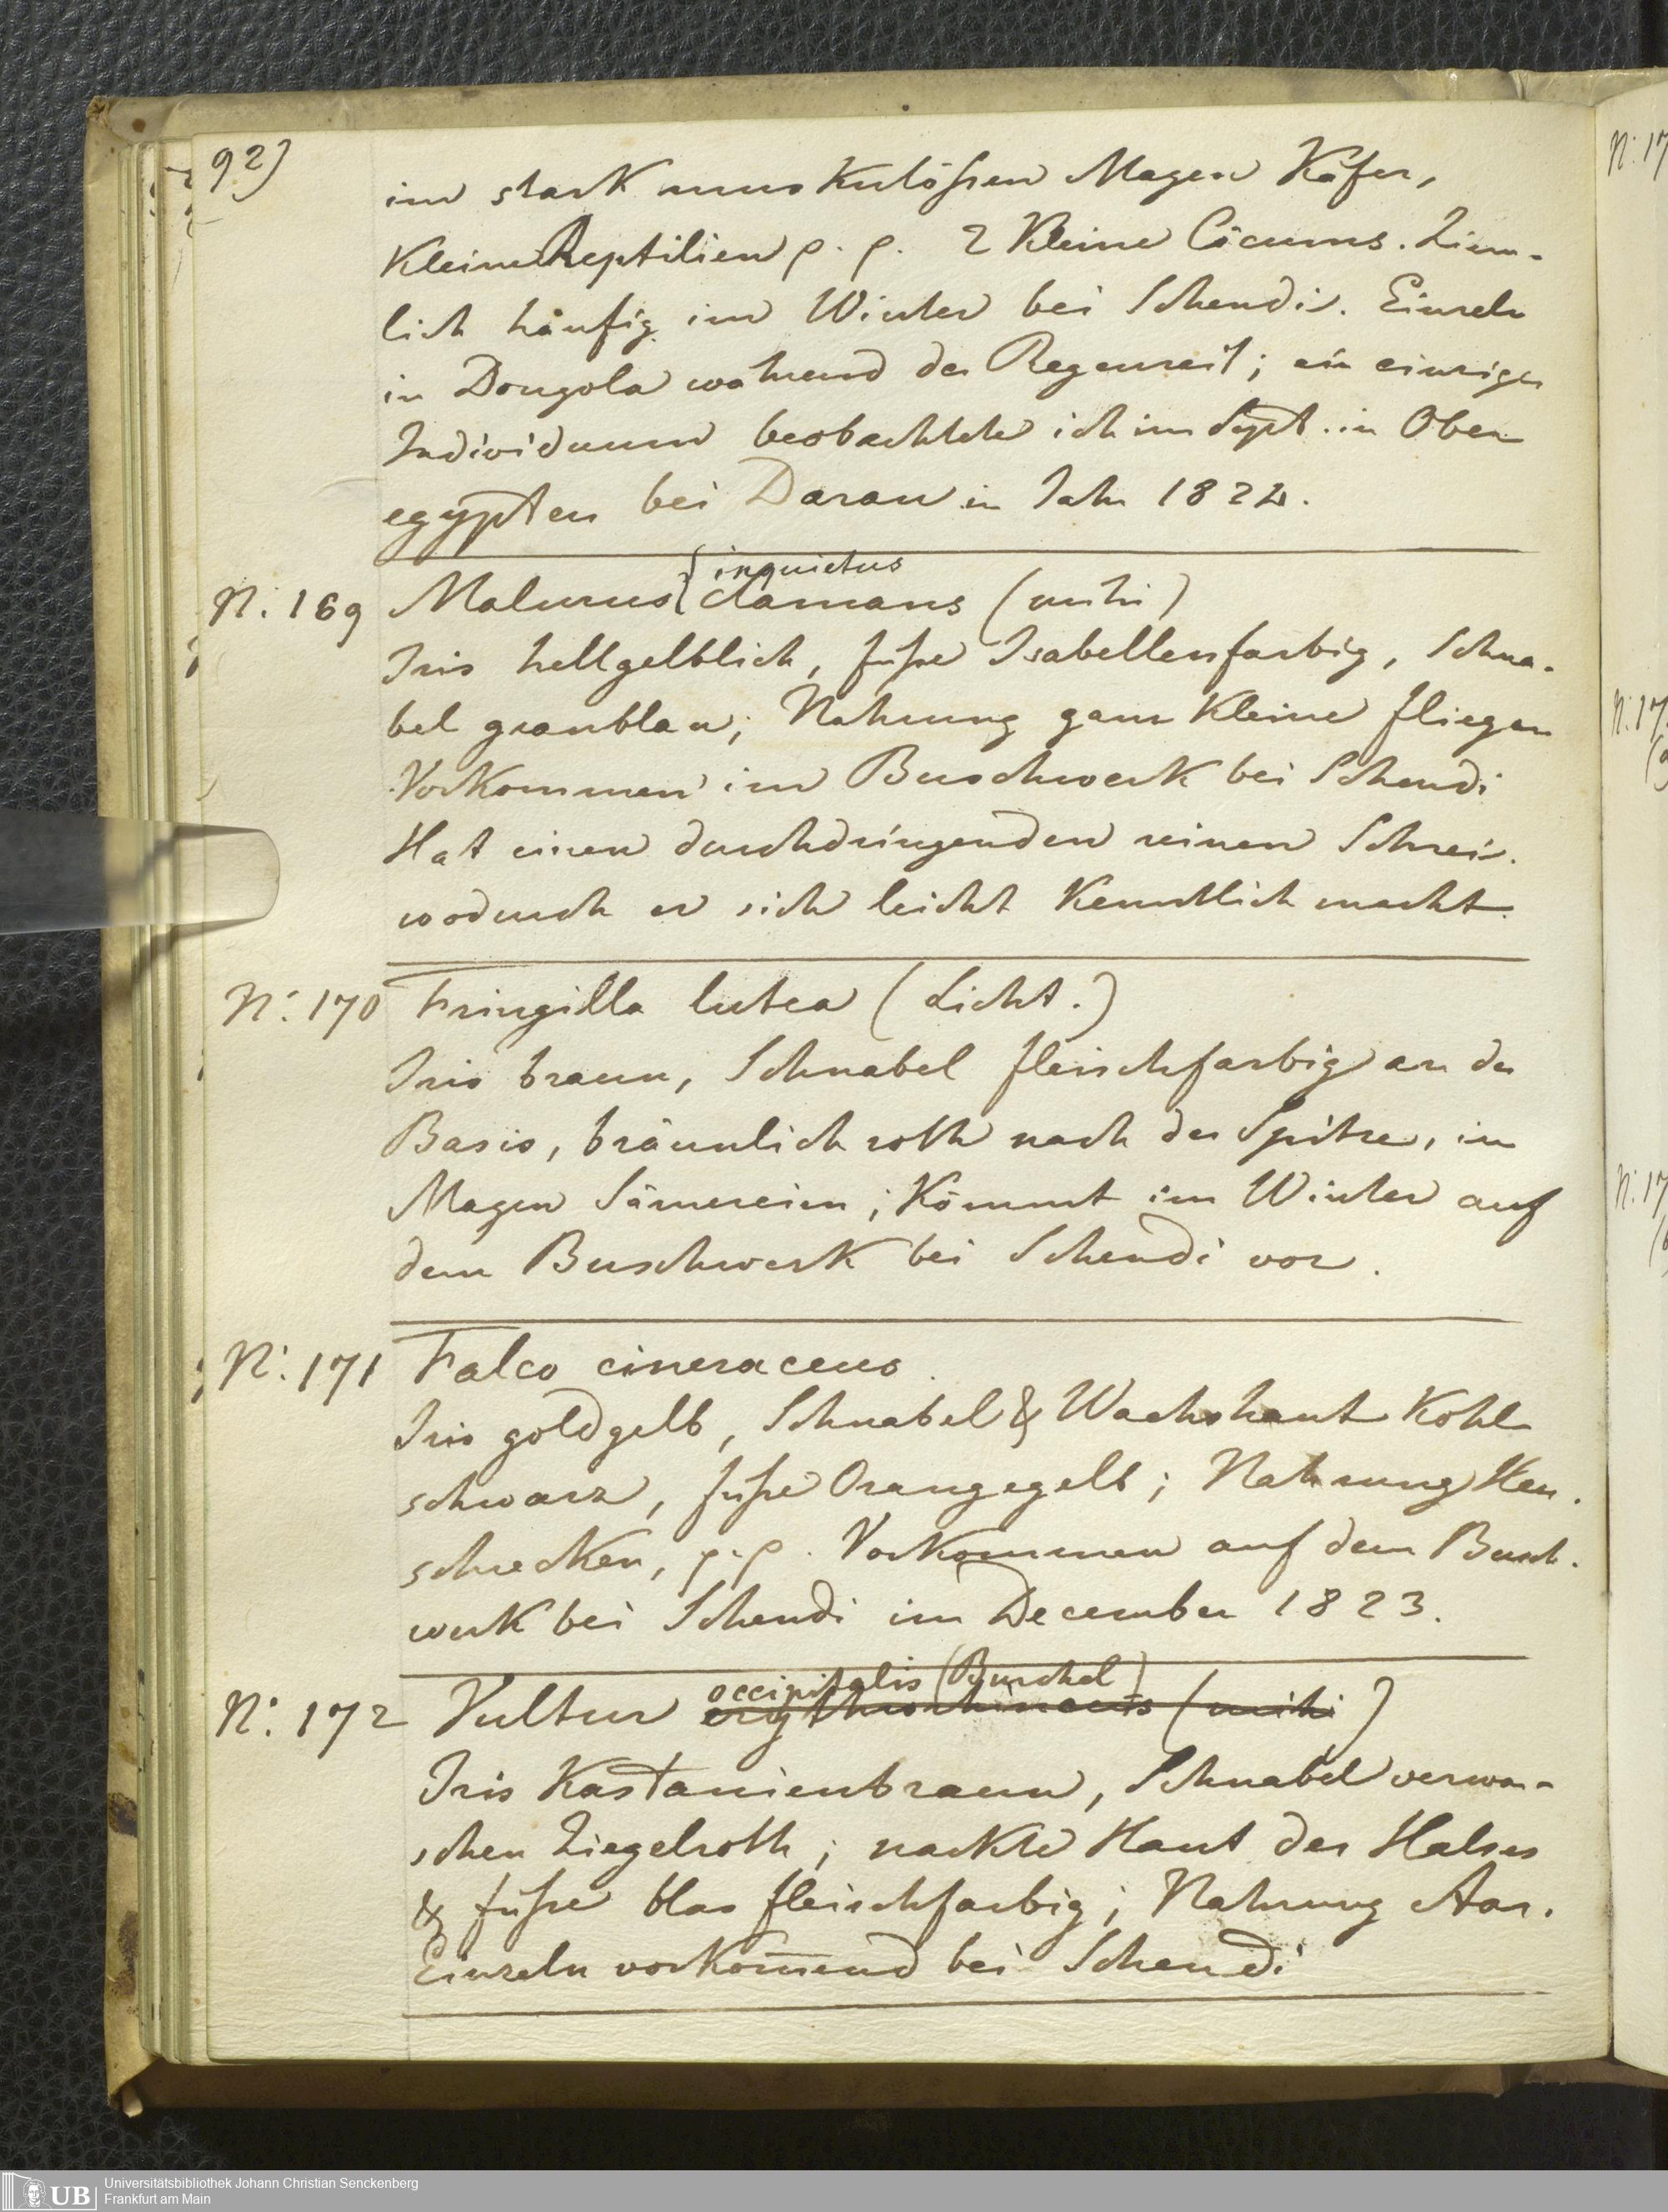 92)
im stark muskulößen Magen Käfer,
Kleine Reptilien p. p. 2 Kleine Cäcums. Ziem-
lich häufig im Winter bei Schendi. Einzeln
in Dongola während der Regenzeit; ein einziges
Individuum beobachtete ich im Sept. in Ober
egypten bei Darau im Jahr 1822.
inquietus
N: 169 Malurus clamans (mihi)
Iris hellgelblich, füße Isabellenfarbig, Schna-
bel graublau; Nahrung ganz Kleine fliegen
Vorkommen im Buschwerk bei Schendi
Hat einen durchdringenden reinen Schrei.
wodurch er sich leicht Kenntlich macht.
N: 170 Fringilla lutea (Licht.)
Iris braun, Schnabel fleischfarbig an der
Basis, bräunlich roth nach der Spitze, im
Magen Sämereien; Kömmt im Winter auf
dem Buschwerk bei Schendi vor.
N: 171 Falco cineraceus.
Iris goldgelb, Schnabel & Wachshaut Kohl
schwarz, füße Orangegelb; Nahrung Heu-
schrecken, p. p. Vorkommen auf dem Busch-
werk bei Schendi im December 1823.
occipitalis (Burchel)
N: 172 Vultur (mihi)
Iris Kastanienbraun, Schnabel verwa-
schen Ziegelroth; nackte Haut des Halses
& füße blas fleischfarbig; Nahrung Aas.
Einzeln vorkom̄end bei Schendi
N: 17
N: 17
N: 17
UB Universitätsbibliothek Johann Christian Senckenberg
Frankfurt am Main